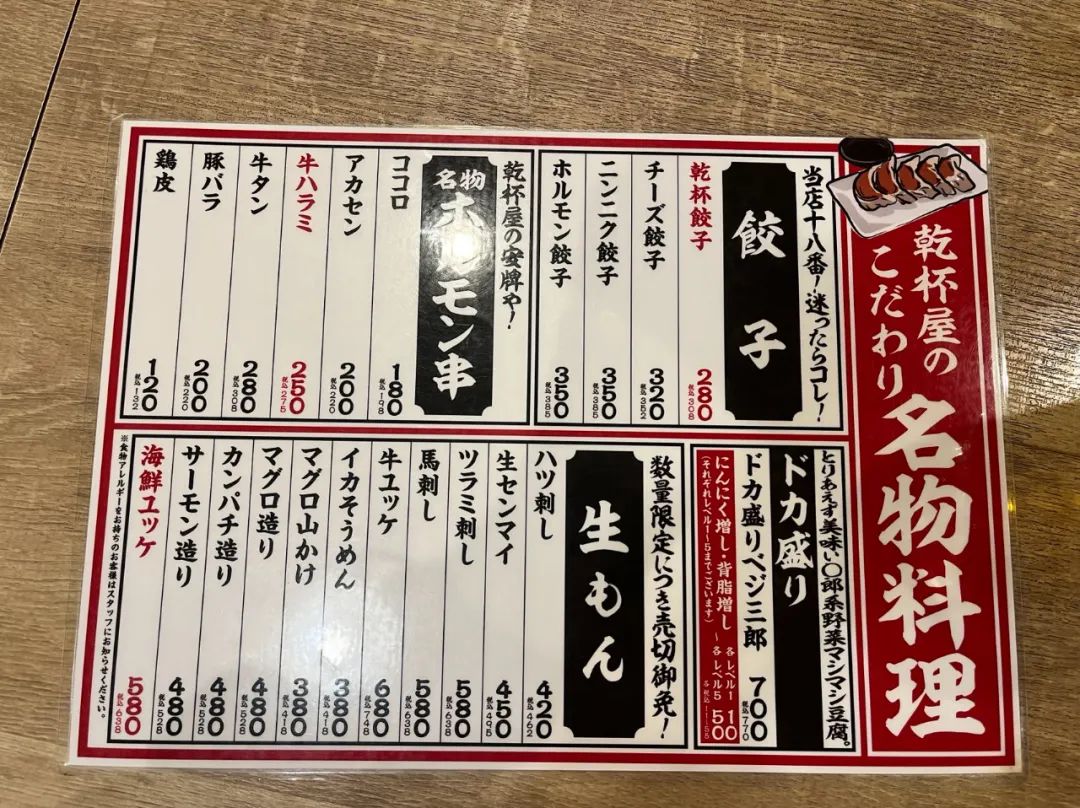 乾杯屋の
こだわり
名物料理
当店十八番!迷ったらコレ!
餃子
乾杯餃子 280 税込308
チーズ餃子 320 税込352
ニンニク餃子 350 税込385
ホルモン餃子 350 税込385
乾杯屋の安牌や!
名物
ホルモン串
ココロ 180 税込198
アカセン 200 税込220
牛ハラミ 250 税込275
牛タン 280 税込308
豚バラ 200 税込220
鶏皮 120 税込132
とりあえず美味い〇郎系野菜マシマシ豆腐。
ドカ盛り
ドカ盛りベジ三郎 700 税込770
にんにく増し・背脂増し 各レベル1 10 〜 各レベル5 50 各税込11〜55
(それぞれレベル1〜5までございます)
数量限定につき売切御免!
生もん
ハツ刺し 420 税込462
生センマイ 450 税込495
ツラミ刺し 580 税込638
馬刺し 580 税込638
牛ユッケ 680 税込748
イカそうめん 380 税込418
マグロ山かけ 380 税込418
マグロ造り 480 税込528
カンパチ造り 480 税込528
サーモン造り 480 税込528
海鮮ユッケ 580 税込638
※食物アレルギーをお持ちのお客様はスタッフにお知らせください。